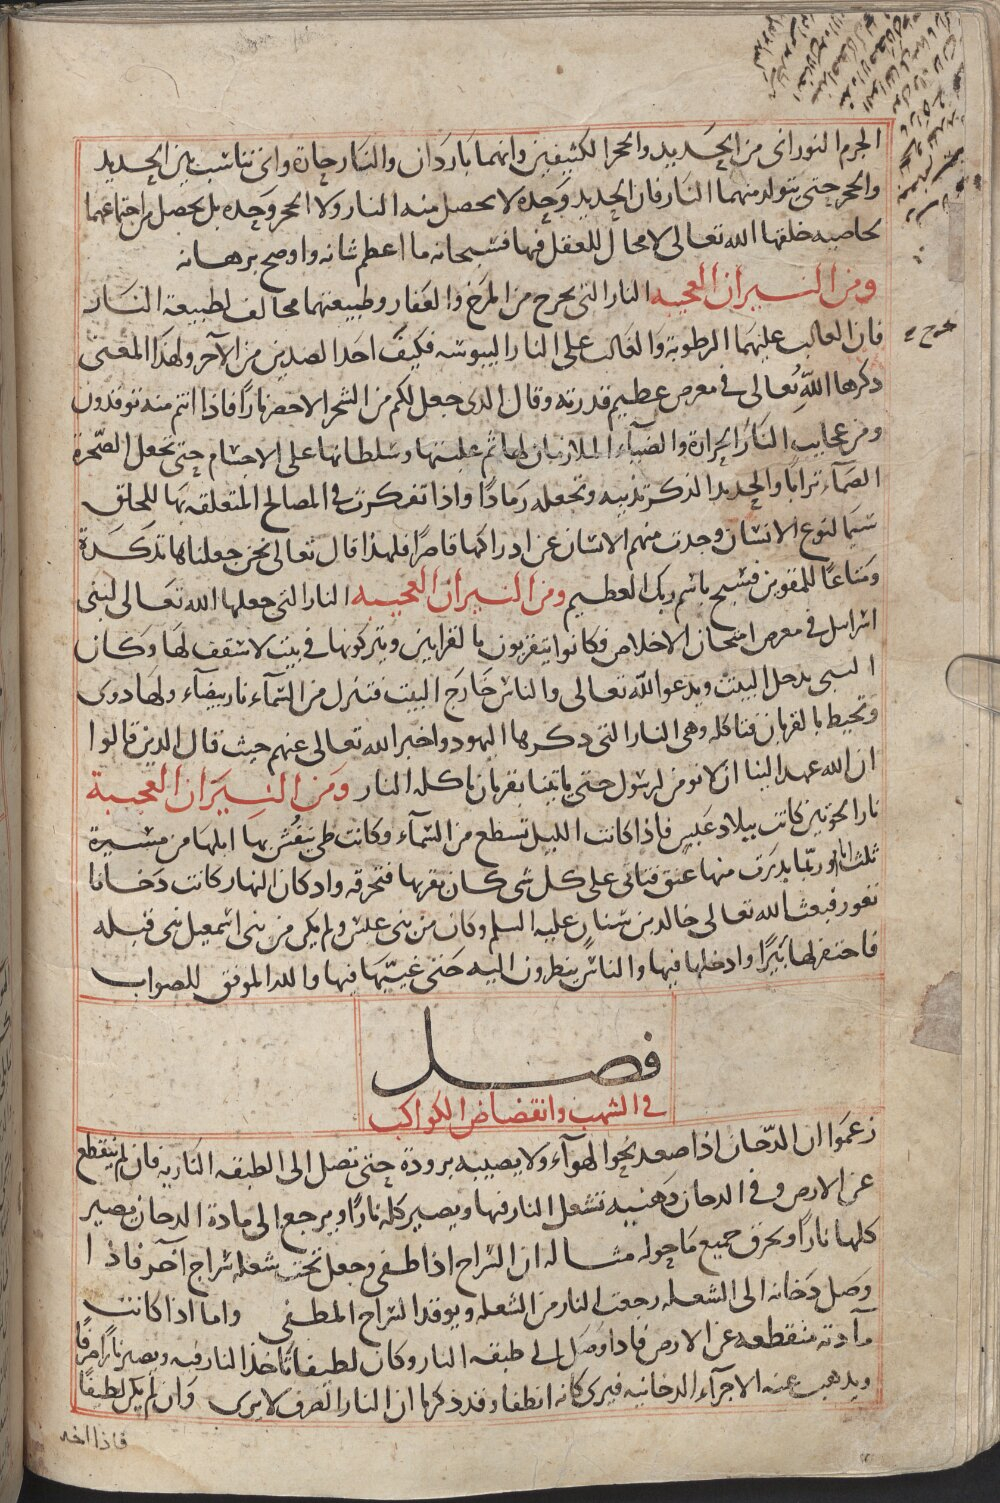 الجرم النورانى من الحديد والحجر الكثيفين وانهما باردان والنار حارة واى تناسب بين الحديد
والحجر حتى يتولد منهما النار فان الحديد وحده لا يحصل منه النار ولا الحجر وحده بل يحصل من اجتماعهما
بخاصيه خلقها الله تعالى لا مجال للعقل فيها فسبحانه ما اعظم شانه واوضح برهانه
ومن النيران العجيبه النار التى يخرج من المرخ والعفار وطبيعتهما مخالف لطبيعة النار
فان الغالب عليهما الرطوبة والغالب على النار اليبوسه فكيف احد الضدين من الآخر ولهذا المعنى
ذكرها الله تعالى فى معرض عظيم قدرته وقال الذى جعل لكم من الشجر الاخضر نارًا فاذا انتم منه توقدون
ومن عجايب النار الحرارة والضياء الملازمان لها ثم غلبتها وسلطانها على الاجسام حتى تجعل الصخرة
الصماء ترابًا والحديد الذكر تذيبه وتجعله رمادًا واذا تفكرت فى المصالح المتعلقه بها للخلق
سيما لنوع الانسان وجدت منهم الانسان عن ادراكها قاصرًا فلهذا قال تعالى نحن جعلناها تذكرة
ومتاعًا للمقوين فسبح باسم ربك العظيم ومن النيران العجيبه النار التى جعلها الله تعالى لبنى
اسرايل فى معرض امتحان الاخلاص فكانوا يتقربون بالقرابين ويتركونها فى بيت لا سقف لها وكان
النبى يدخل البيت ويدعو الله تعالى والناس خارج البيت فتنزل من السماء نار بيضاء ولها دوى
وتحيط بالقربان فتاكله وهى النار التى ذكرها اليهود واخبر الله تعالى عنهم حيث قال الذين قالوا
ان الله عهد الينا ان لا نومن لرسول حتى ياتينا بقربان تاكله النار ومن النيران العجيبة
نار الحرتين كانت ببلاد عبس فاذا كانت الليل تسطع من السماء وكانت طى تنفش بها ابلها من مسيرة
ثلث ايام وربما بدرت منها عنق فتاتى على كل شى كان بقربها فتحرقه واذ كان النهار كانت دخانا
تفور فبعث الله تعالى خالد بن سنان عليه السلم وكان من بنى عبس ولم يكن من بنى اسمعيل نبى قبله
فاحتفر لها بئرًا وادخلها فيها والناس ينظرون اليه حتى غيبها فيها والله الموفق للصواب
فصل
فى الشهب وانقضاض الكواكب
زعموا ان الدخان اذا صعد نحو الهواء ولا يصيبه برودة حتى تصل الى الطبقه الناريه فان لم ينقطع
عن الارض وفى الدخان دهنيه تشعل النار فيها ويصير كله نارًا ويرجع الى مادة الدخان فصير
كلها نارًا ويحرق جميع ما حوله مثاله ان السراج اذا طفى وجعل تحت شعله سراج آخر فاذا
وصل دخانه الى الشعله رجعت النار من الشعله ويوقد السراج المطفى واما اذا كانت
مادته منقطعه عن الارض فاذا وصل الى طبقه النار وكان لطيفًا تاخذ النار فيه ويصير نارًا صرفًا
ويذهب عنه الاجزاء الدخانيه فيرى كانه انطفا وقد ذكرنا ان النار الصرف لا يرى وان لم يكن لطيفًا
فاذا اخذ